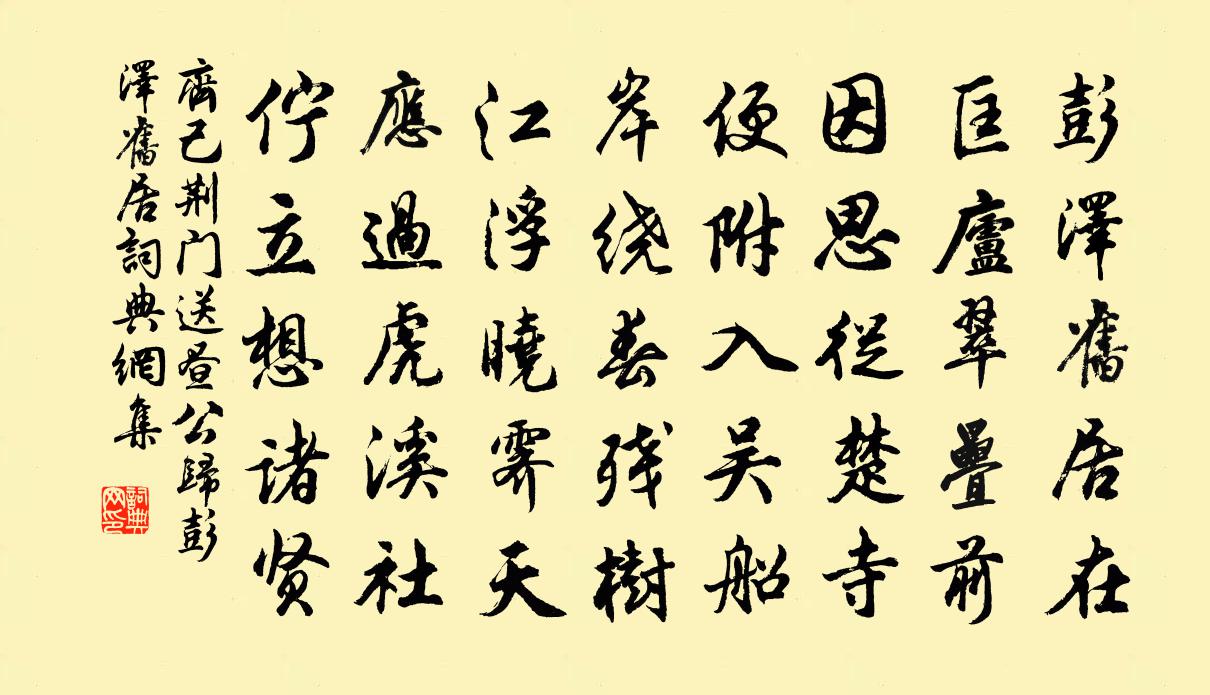 彭澤舊居在
匡廬翠疊前
因思從楚寺
便附入吴船
岸绕春残樹
江浮曉霽天
應過虎溪社
佇立想諸贤
齊己荆门送晝公歸彭
澤舊居詞典網集
詞典
网印